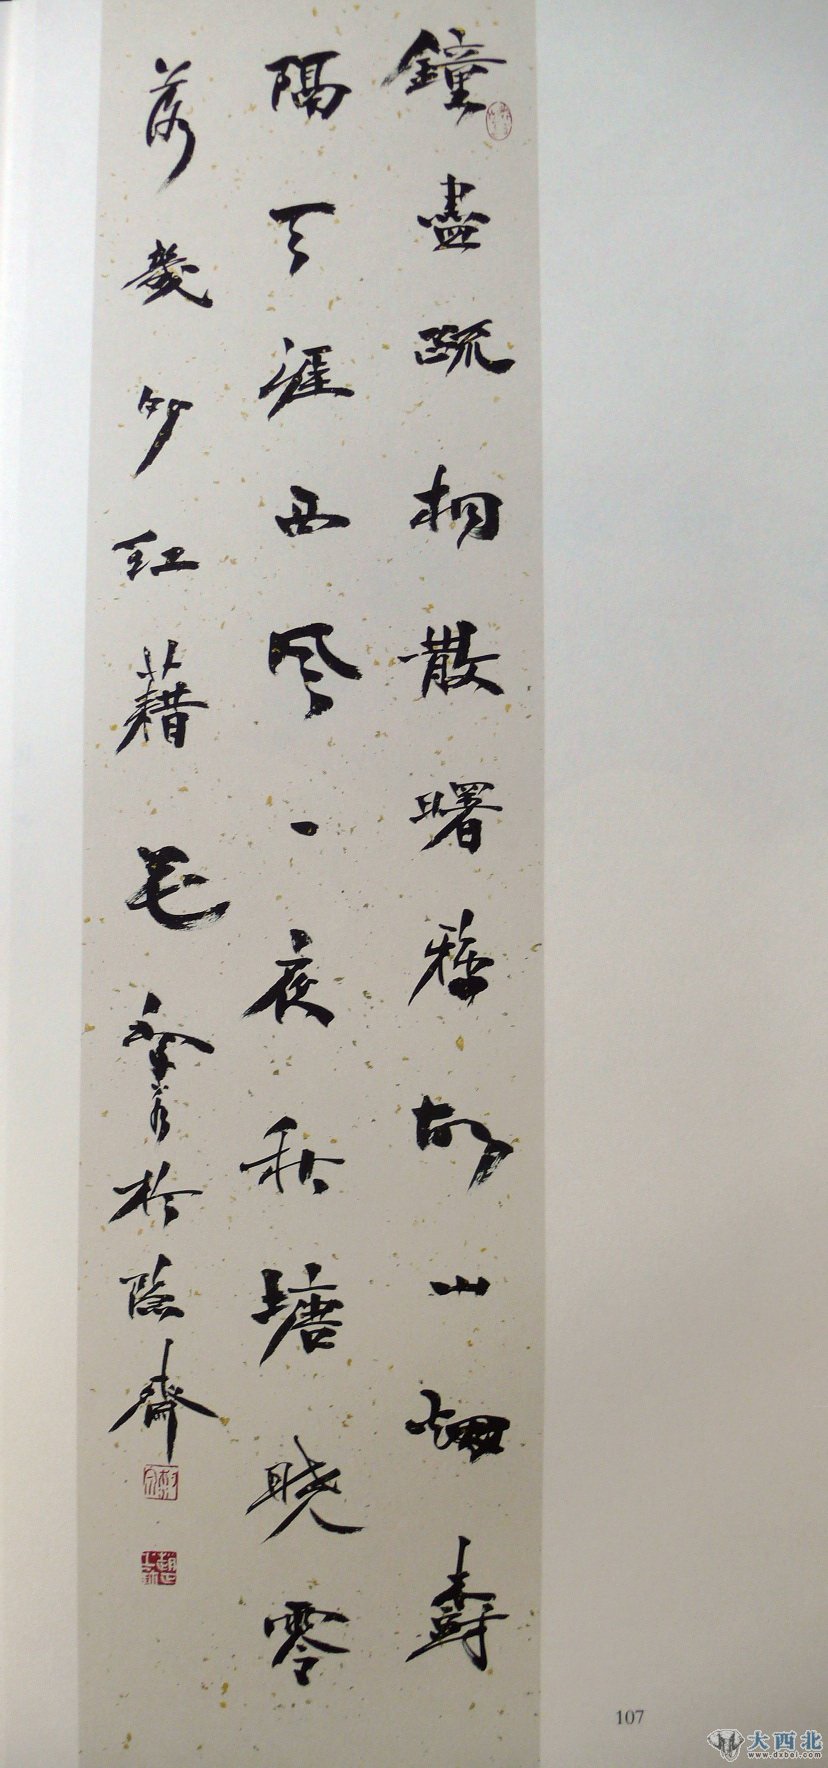 鐘盡疏桐散曙鴉故山烟樹
隔天涯西风一夜秋塘晓零
落幾多红藕花於隐齋
107
大西北
www.dxbei.com